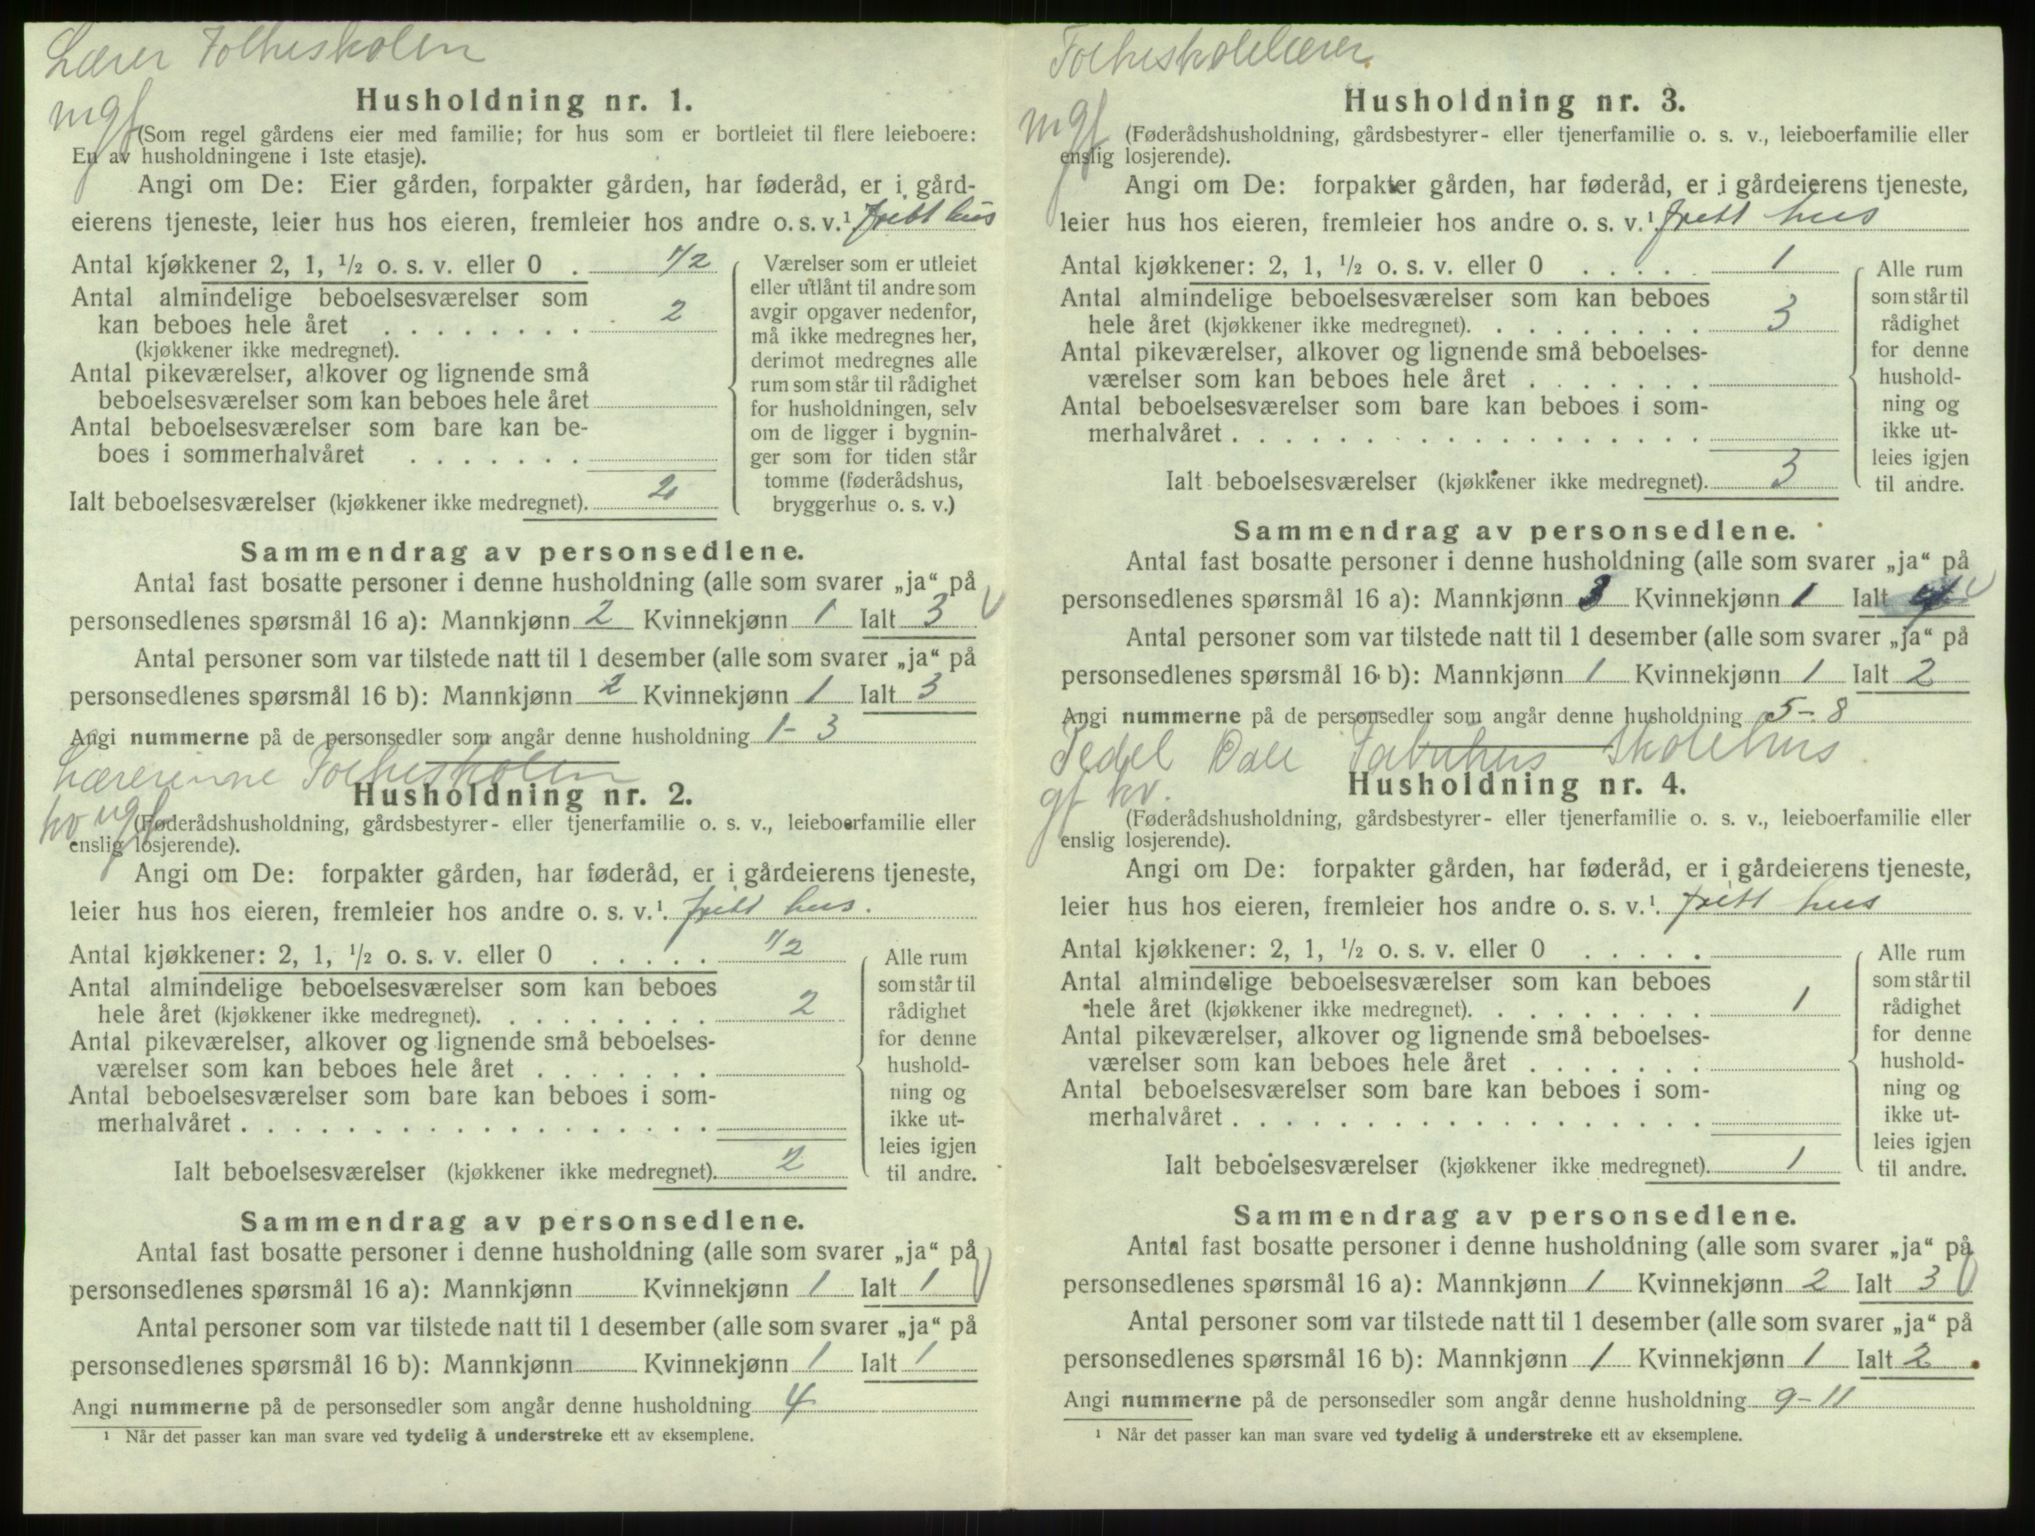 Lærer Folkeskolen
mgf
Husholdning nr. 1.
(Som regel gårdens eier med familie; for hus som er bortleiet til flere leieboere:
En av husholdningene i 1ste etasje).
Angi om De: Eier gården, forpakter gården, har føderåd, er i gård-
eierens tjeneste, leier hus hos eieren, fremleier hos andre o. s. v.¹ fritt hus
Antal kjøkkener 2, 1, ½ o. s. v. eller 0 . 1/2
Antal almindelige beboelsesværelser som
kan beboes hele året . . . . . . . . 2
(kjøkkener ikke medregnet).
Antal pikeværelser, alkover og lignende små
beboelsesværelser som kan beboes hele året
Antal beboelsesværelser som bare kan be-
boes i sommerhalvåret . . . . . . .
Ialt beboelsesværelser (kjøkkener ikke medregnet). 2
Værelser som er utleiet
eller utlånt til andre som
avgir opgaver nedenfor,
må ikke medregnes her,
derimot medregnes alle
rum som står til rådighet
for husholdningen, selv
om de ligger i bygnin-
ger som for tiden står
tomme (føderådshus,
bryggerhus o. s. v.)
Sammendrag av personsedlene.
Antal fast bosatte personer i denne husholdning (alle som svarer „ja“ på
personsedlenes spørsmål 16 a): Mannkjønn 2 Kvinnekjønn 1 Ialt 3
Antal personer som var tilstede natt til 1 desember (alle som svarer „ja“ på
personsedlenes spørsmål 16 b): Mannkjønn 2 Kvinnekjønn 1 Ialt 3
Angi nummerne på de personsedler som angår denne husholdning 1-3
Lærerinne Folkeskolen
kv ugf
Husholdning nr. 2.
(Føderådshusholdning, gårdsbestyrer- eller tjenerfamilie o. s. v., leieboerfamilie eller
enslig losjerende).
Angi om De: forpakter gården, har føderåd, er i gårdeierens tjeneste,
leier hus hos eieren, fremleier hos andre o. s. v.¹. fritt hus.
Antal kjøkkener: 2, 1, ½ o. s. v. eller 0 . . . . . 1/2
Antal almindelige beboelsesværelser som kan beboes
hele året (kjøkkener ikke medregnet). . . . . . . . . 2
Antal pikeværelser, alkover og lignende små beboelses-
værelser som kan beboes hele året . . . . . . .
Antal beboelsesværelser som bare kan beboes i som-
merhalvåret . . . . . . . . . . . . . . . . . .
Ialt beboelsesværelser (kjøkkener ikke medregnet). 2
Alle rum
som står til
rådighet
for denne
hushold-
ning og
ikke ut-
leies igjen
til andre.
Sammendrag av personsedlene.
Antal fast bosatte personer i denne husholdning (alle som svarer „ja“ på
personsedlenes spørsmål 16 a): Mannkjønn Kvinnekjønn 1 Ialt 1
Antal personer som var tilstede natt til 1 desember (alle som svarer „ja“ på
personsedlenes spørsmål 16 b): Mannkjønn Kvinnekjønn 1 Ialt 1
Angi nummerne på de personsedler som angår denne husholdning 4
¹ Når det passer kan man svare ved tydelig å understreke ett av eksemplene.
Folkeskolelærer
mgf
Husholdning nr. 3.
(Føderådshusholdning, gårdsbestyrer- eller tjenerfamilie o. s. v., leieboerfamilie eller
enslig losjerende).
Angi om De: forpakter gården, har føderåd, er i gårdeierens tjeneste,
leier hus hos eieren, fremleier hos andre o. s. v.¹ fritt hus
Antal kjøkkener: 2, 1, ½ o. s. v. eller 0 . . . . . 1
Antal almindelige beboelsesværelser som kan beboes
hele året (kjøkkener ikke medregnet). . . . . . . . . 3
Antal pikeværelser, alkover og lignende små beboelses-
værelser som kan beboes hele året . . . . . . .
Antal beboelsesværelser som bare kan beboes i som-
merhalvåret . . . . . . . . . . . . . . . . . .
Ialt beboelsesværelser (kjøkkener ikke medregnet). 3
Alle rum
som står til
rådighet
for denne
hushold-
ning og
ikke ut-
leies igjen
til andre.
Sammendrag av personsedlene.
Antal fast bosatte personer i denne husholdning (alle som svarer „ja“ på
personsedlenes spørsmål 16 a): Mannkjønn 3 Kvinnekjønn 1 Ialt 4
Antal personer som var tilstede natt til 1 desember (alle som svarer „ja“ på
personsedlenes spørsmål 16 b): Mannkjønn 1 Kvinnekjønn 1 Ialt 2
Angi nummerne på de personsedler som angår denne husholdning 5-8
Pedel Dale Skolehus
gf kv.
Husholdning nr. 4.
(Føderådshusholdning, gårdsbestyrer- eller tjenerfamilie o. s. v., leieboerfamilie eller
enslig losjerende).
Angi om De: forpakter gården, har føderåd, er i gårdeierens tjeneste,
leier hus hos eieren, fremleier hos andre o. s. v.¹. fritt hus
Antal kjøkkener: 2, 1, ½ o. s. v. eller 0 . . . . .
Antal almindelige beboelsesværelser som kan beboes
hele året (kjøkkener ikke medregnet). . . . . . . . . 1
Antal pikeværelser, alkover og lignende små beboelses-
værelser som kan beboes hele året . . . . . . .
Antal beboelsesværelser som bare kan beboes i som-
merhalvåret . . . . . . . . . . . . . . . . . .
Ialt beboelsesværelser (kjøkkener ikke medregnet). 1
Alle rum
som står til
rådighet
for denne
hushold-
ning og
ikke ut-
leies igjen
til andre.
Sammendrag av personsedlene.
Antal fast bosatte personer i denne husholdning (alle som svarer „ja“ på
personsedlenes spørsmål 16 a): Mannkjønn 1 Kvinnekjønn 2 Ialt 3
Antal personer som var tilstede natt til 1 desember (alle som svarer „ja“ på
personsedlenes spørsmål 16 b): Mannkjønn 1 Kvinnekjønn 1 Ialt 2
Angi nummerne på de personsedler som angår denne husholdning 9-11
¹ Når det passer kan man svare ved tydelig å understreke ett av eksemplene.